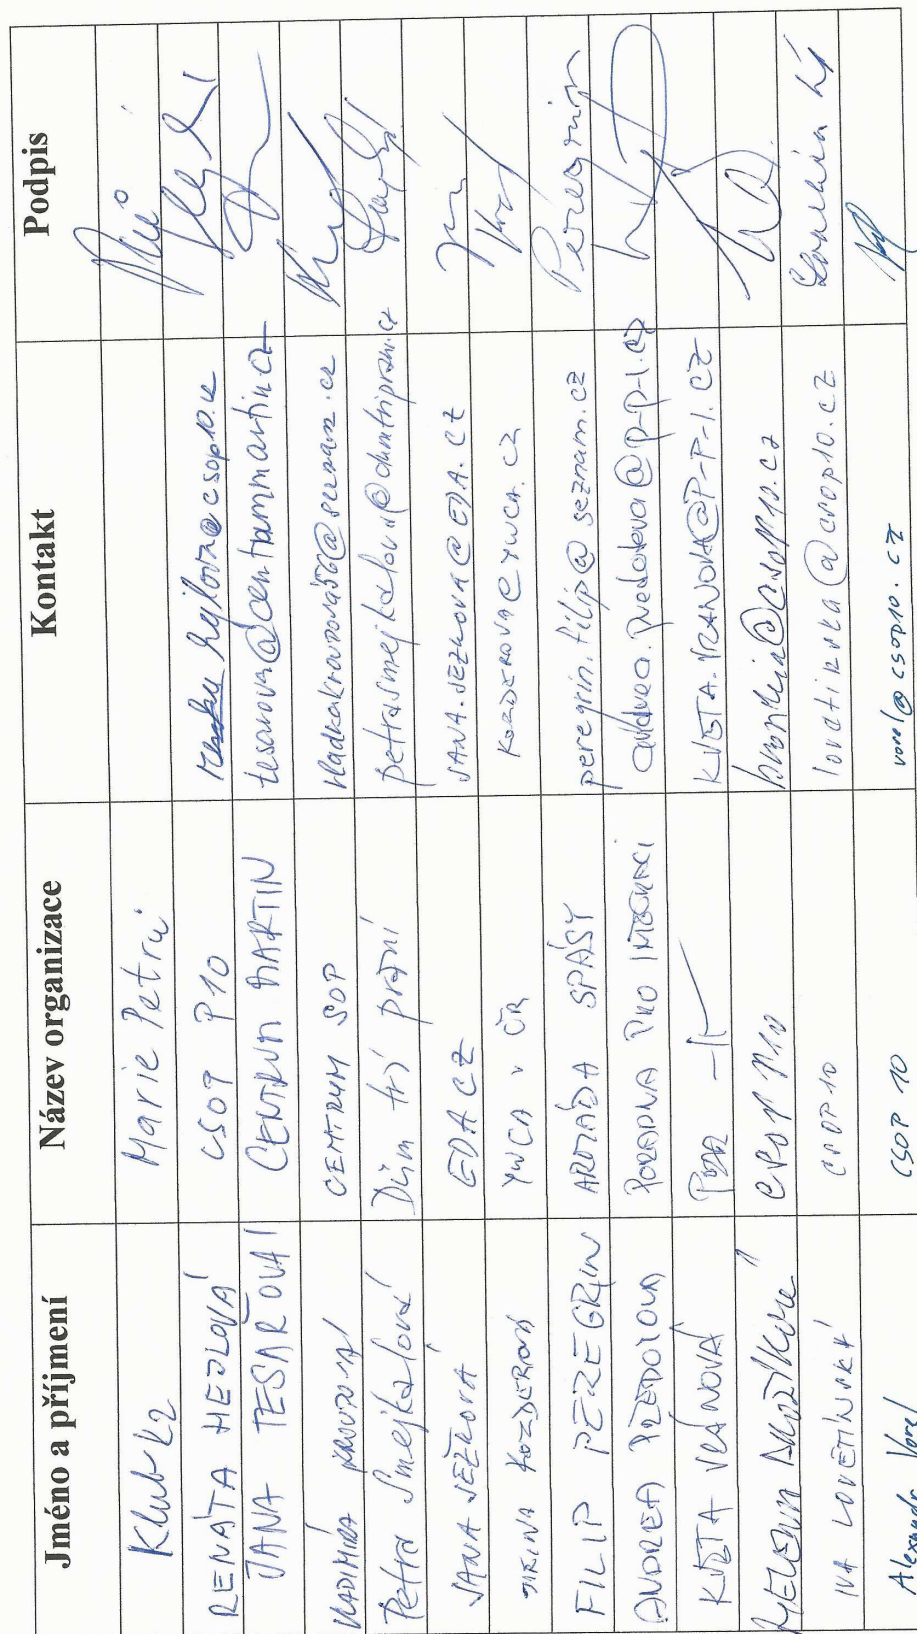 Jméno a příjmení Název organizace Kontakt Podpis
Klub K2 Marie Petrů
RENÁTA HEJLOVÁ CSOP P10 hejlova@csop10.cz
JANA TESAŘOVÁ CENTRUM MARTIN tesarova@centrummartin.cz
VLADIMÍRA CENTRUM SOP
Petra Smejkalová Dům tří přání petra.smejkalova@dumtriprani.cz
JANA JEŽKOVÁ EDA CZ JANA.JEZKOVA@EDA.CZ
KOZDEROVÁ YWCA v ČR KOZDEROVA@YWCA.CZ
FILIP PEREGRIN ARMÁDA SPÁSY peregrin.filip@seznam.cz Peregrin
ANDREA PORADNA PRO INTEGRACI
KVĚTA VRÁNOVÁ KVETA.VRANOVA@P-P-I.CZ
CSOP P10
IVA LOVĚTINSKÁ CSOP 10 lovetinska@csop10.cz
Alexandr Vorel CSOP 10 vorel@csop10.cz